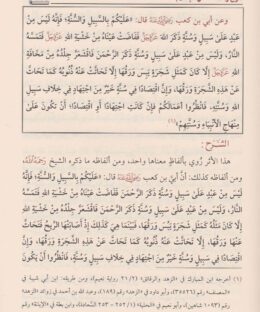 وعن أبي بن كعب رضي الله عنه قال: «عَلَيْكُمْ بِالسَّبِيلِ وَالسُّنَّةِ؛ فَإِنَّهُ لَيْسَ مِنْ
عَبْدٍ عَلَىٰ سَبِيلٍ وَسُنَّةٍ ذَكَرَ الرَّحْمَنَ عَزَّ وَجَلَّ فَفَاضَتْ عَيْنَاهُ مِنْ خَشْيَةِ اللهِ عَزَّ وَجَلَّ فَتَمَسُّهُ
النَّارُ، وَلَيْسَ مِنْ عَبْدٍ عَلَىٰ سَبِيلٍ وَسُنَّةٍ ذَكَرَ الرَّحْمَنَ فَاقْشَعَرَّ جِلْدُهُ مِنْ مَخَافَةِ
اللهِ عَزَّ وَجَلَّ إِلَّا كَانَ كَمَثَلِ شَجَرَةٍ يَبِسَ وَرَقُهَا، إِلَّا تَحَاتَّتْ عَنْهُ ذُنُوبُهُ كَمَا تَحَاتَّ
عَنْ هَذِهِ الشَّجَرَةِ وَرَقُهَا، وَإِنَّ اقْتِصَادًا فِي سُنَّةٍ خَيْرٌ مِنَ اجْتِهَادٍ فِي خِلَافِ سَبِيلِ
اللهِ وَسُنَّتِهِ، فَانْظُرُوا أَعْمَالَكُمْ فَإِنْ كَانَتِ اجْتِهَادًا أَوِ اقْتِصَادًا؛ أَنْ تَكُونَ عَلَىٰ
مِنْهَاجِ الْأَنْبِيَاءِ وَسُنَّتِهِمْ»(١)
الشَّرْح:
هذا الأثر رُوي بألفاظٍ معناها واحد، ومن ألفاظه ما ذكره الشيخ رحمه الله،
ومن ألفاظه كذلك: أنَّ أبيَّ بن كعب رضي الله عنه قال: «عَلَيْكُمْ بِالسَّبِيلِ وَالسُّنَّةِ؛ فَإِنَّهُ
لَيْسَ مِنْ عَبْدٍ عَلَىٰ سَبِيلٍ وَسُنَّةٍ ذَكَرَ الرَّحْمَنَ فَفَاضَتْ عَيْنَاهُ مِنْ خَشْيَةِ اللهِ فَتَمَسُّهُ
النَّارُ، وَلَيْسَ مِنْ عَبْدٍ عَلَىٰ سَبِيلٍ وَسُنَّةٍ ذَكَرَ الرَّحْمَنَ فَاقْشَعَرَّ جِلْدُهُ مِنْ خَشْيَةِ اللهِ
إِلَّا كَانَ مَثَلُهُ كَمَثَلِ شَجَرَةٍ يَبِسَ وَرَقُهَا، فَبَيْنَمَا هِيَ كَذَلِكَ إِذْ أَصَابَتْهَا الرِّيحُ فَتَحَاتَّ
عَنْهَا وَرَقُهَا، إِلَّا تَحَاتَّتْ عَنْهُ ذُنُوبُهُ كَمَا تَحَاتَّ عَنْ هَذِهِ الشَّجَرَةِ وَرَقُهَا، وَإِنَّ
اقْتِصَادًا فِي سُنَّةٍ خَيْرٌ مِنَ اجْتِهَادٍ فِي خِلَافِ سَبِيلِ اللهِ وَسُنَّتِهِ، فَانْظُرُوا أَنْ يَكُونَ
(١) أخرجه ابن المبارك في «الزهد والرقائق» (٢١/٢ رواية نعيم)، ومن طريقه: ابن أبي شيبة في
«المصنف» رقم (٣٥٥٢٦)، وأبو داود في «الزهد» رقم (١٨٩)، وعبد الله بن أحمد في زوائد «الزهد»
رقم (١٠٩٣ شاهين)، وأبو نعيم في «الحلية» (٢٥٢/١ - ٢٥٣ السعادة)، وابن بطة في «الإبانة» رقم